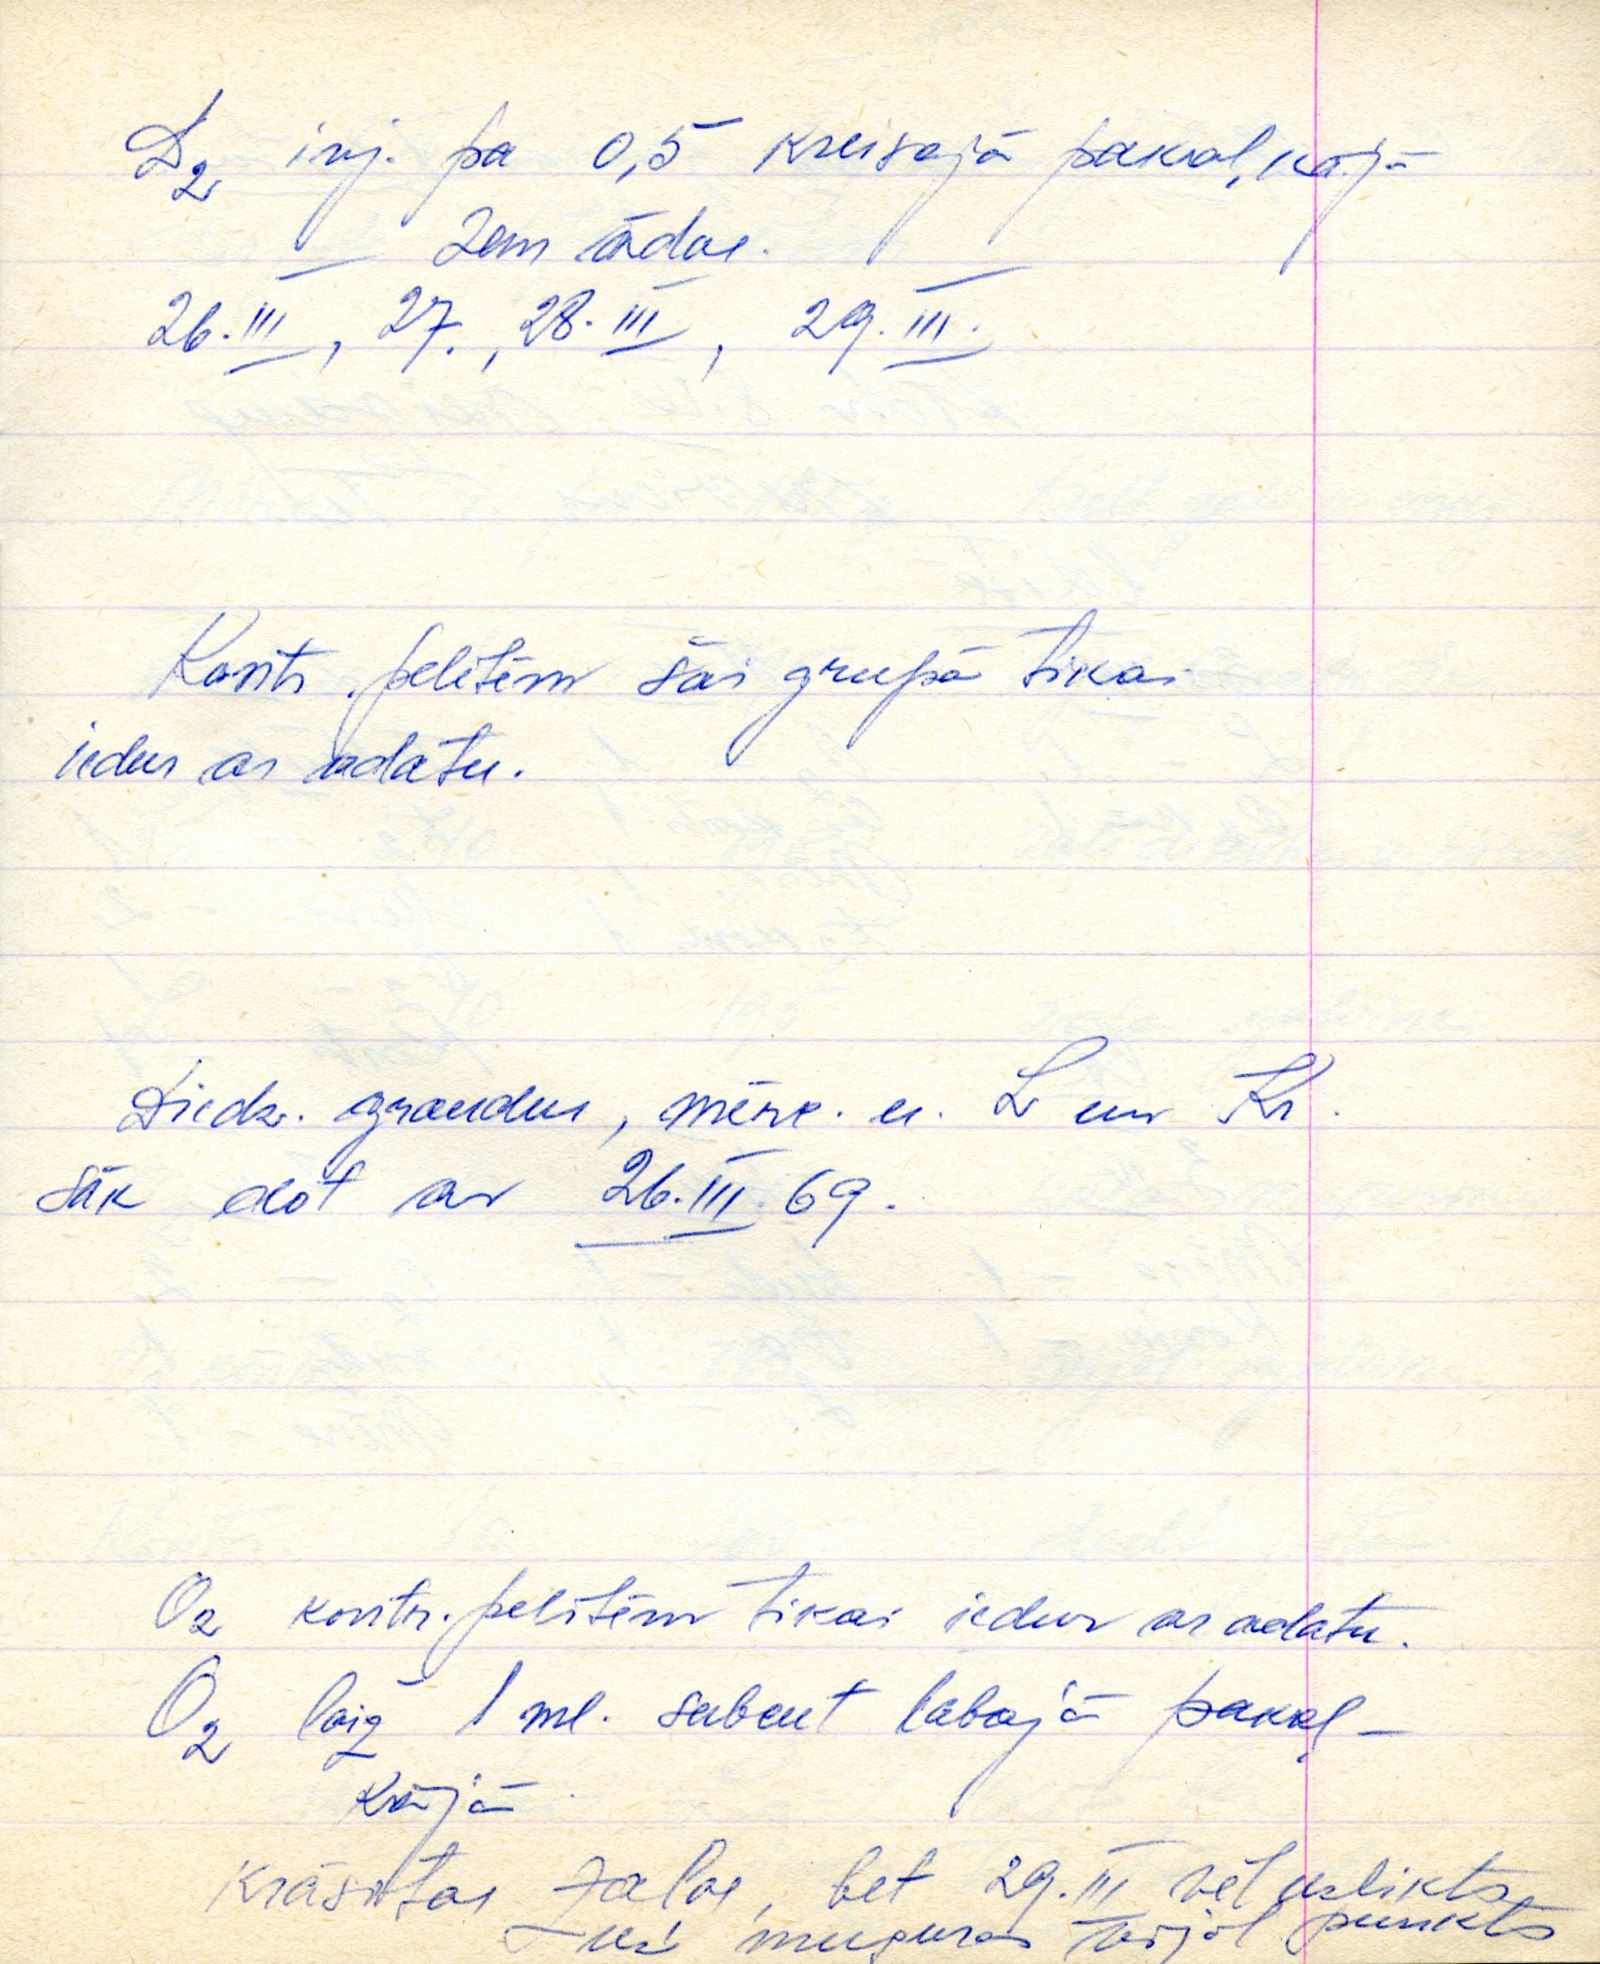 D2 inj. pa 0,5 kreisajā pakaļkājā
zem ādas.
26.III, 27., 28.III, 29.III.
Kontr. pelītēm šai grupā tikai
iedur ar adatu.
Diedz. graudus, mērc. u. L un Kr.
sāk dot ar 26.III.69.
O2 kontr. pelītēm tikai iedur ar adatu.
O2 laiž 1 ml. subcut labajā pakaļ-
kājā
krāsotas zaļas, bet 29.III vēl uzlikts
uz muguras punkts